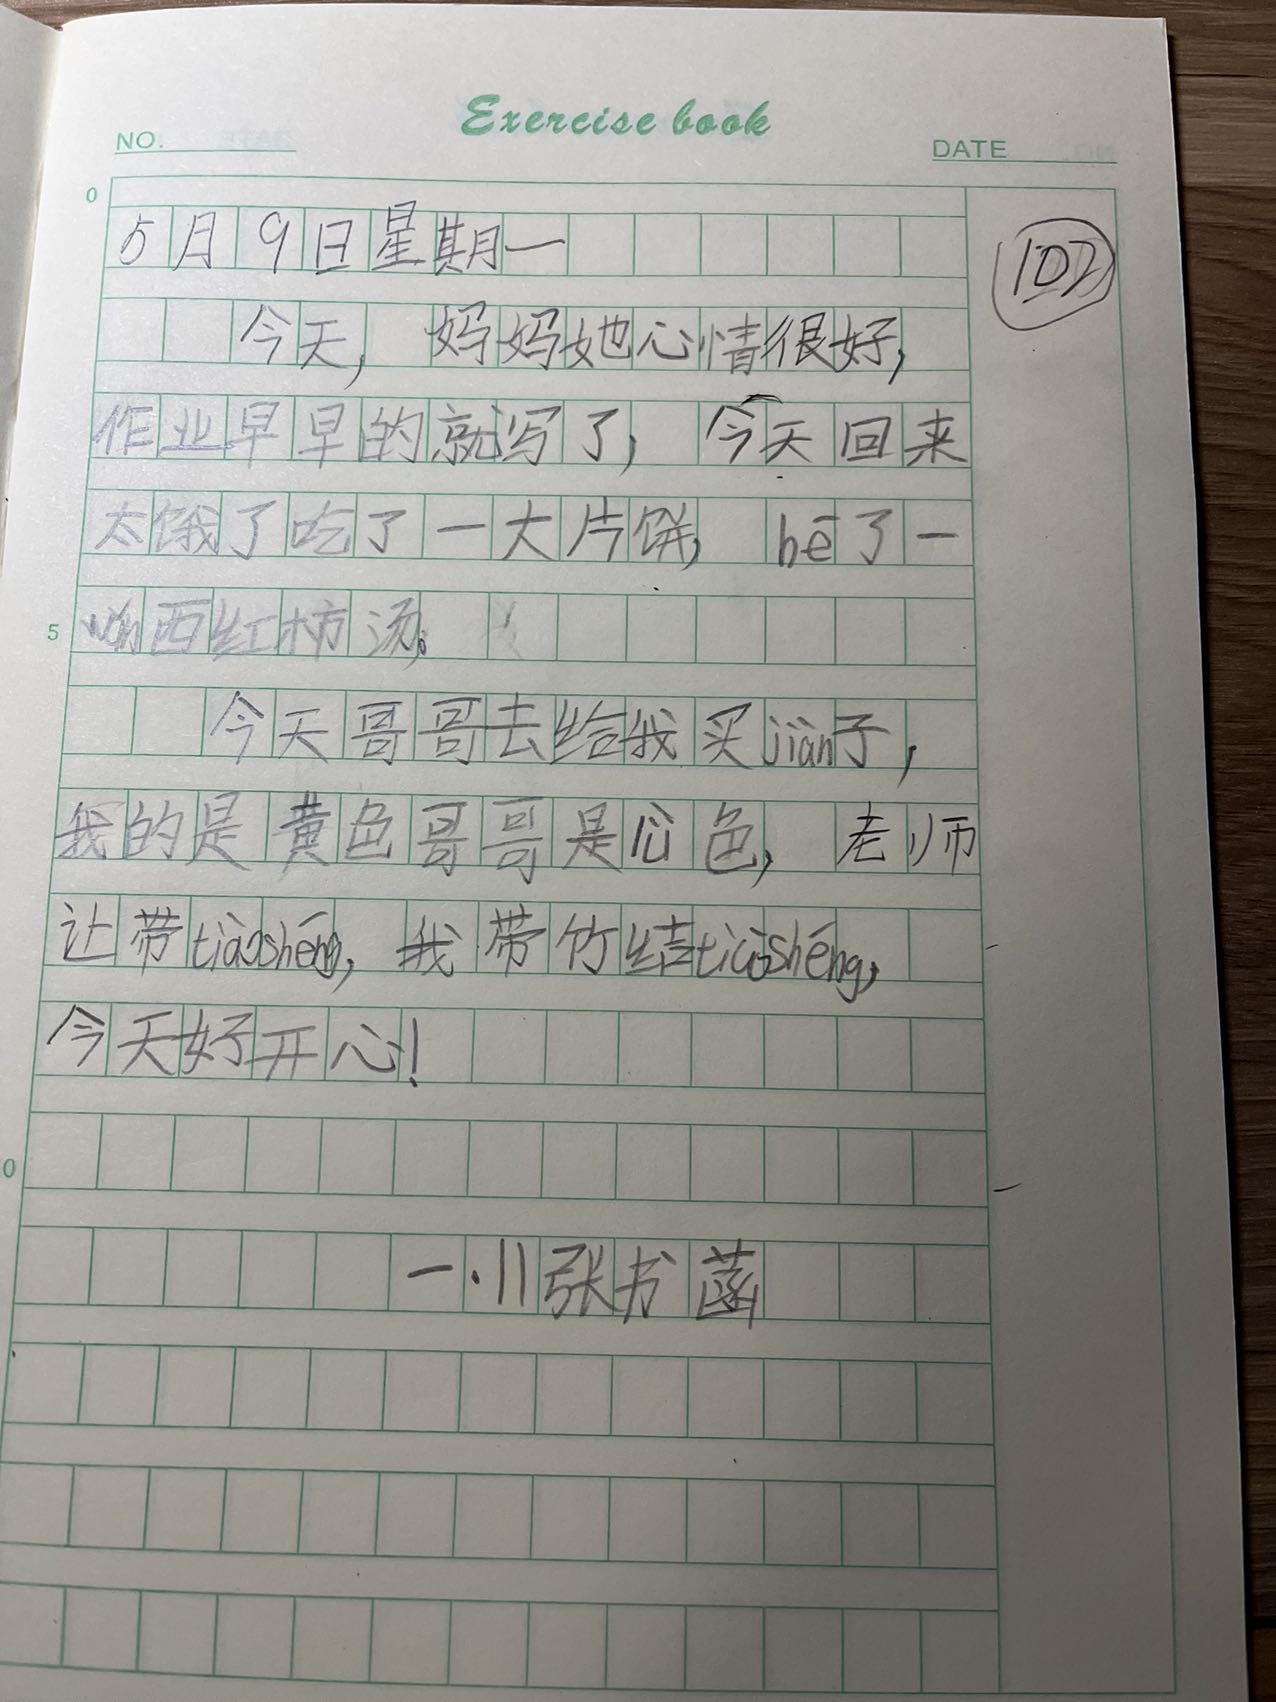 Exercise book
NO.
DATE
0
5月9日星期一
102
今天，妈妈她心情很好，
作业早早的就写了，今天回来
太饿了吃了一大片饼，hē了一
5
wǎn西红柿汤。
今天哥哥去给我买jiàn子，
我的是黄色哥哥是 色，老师
让带tiàoshéng，我带竹结tiàoshéng，
今天好开心！
0
一.11张书菡